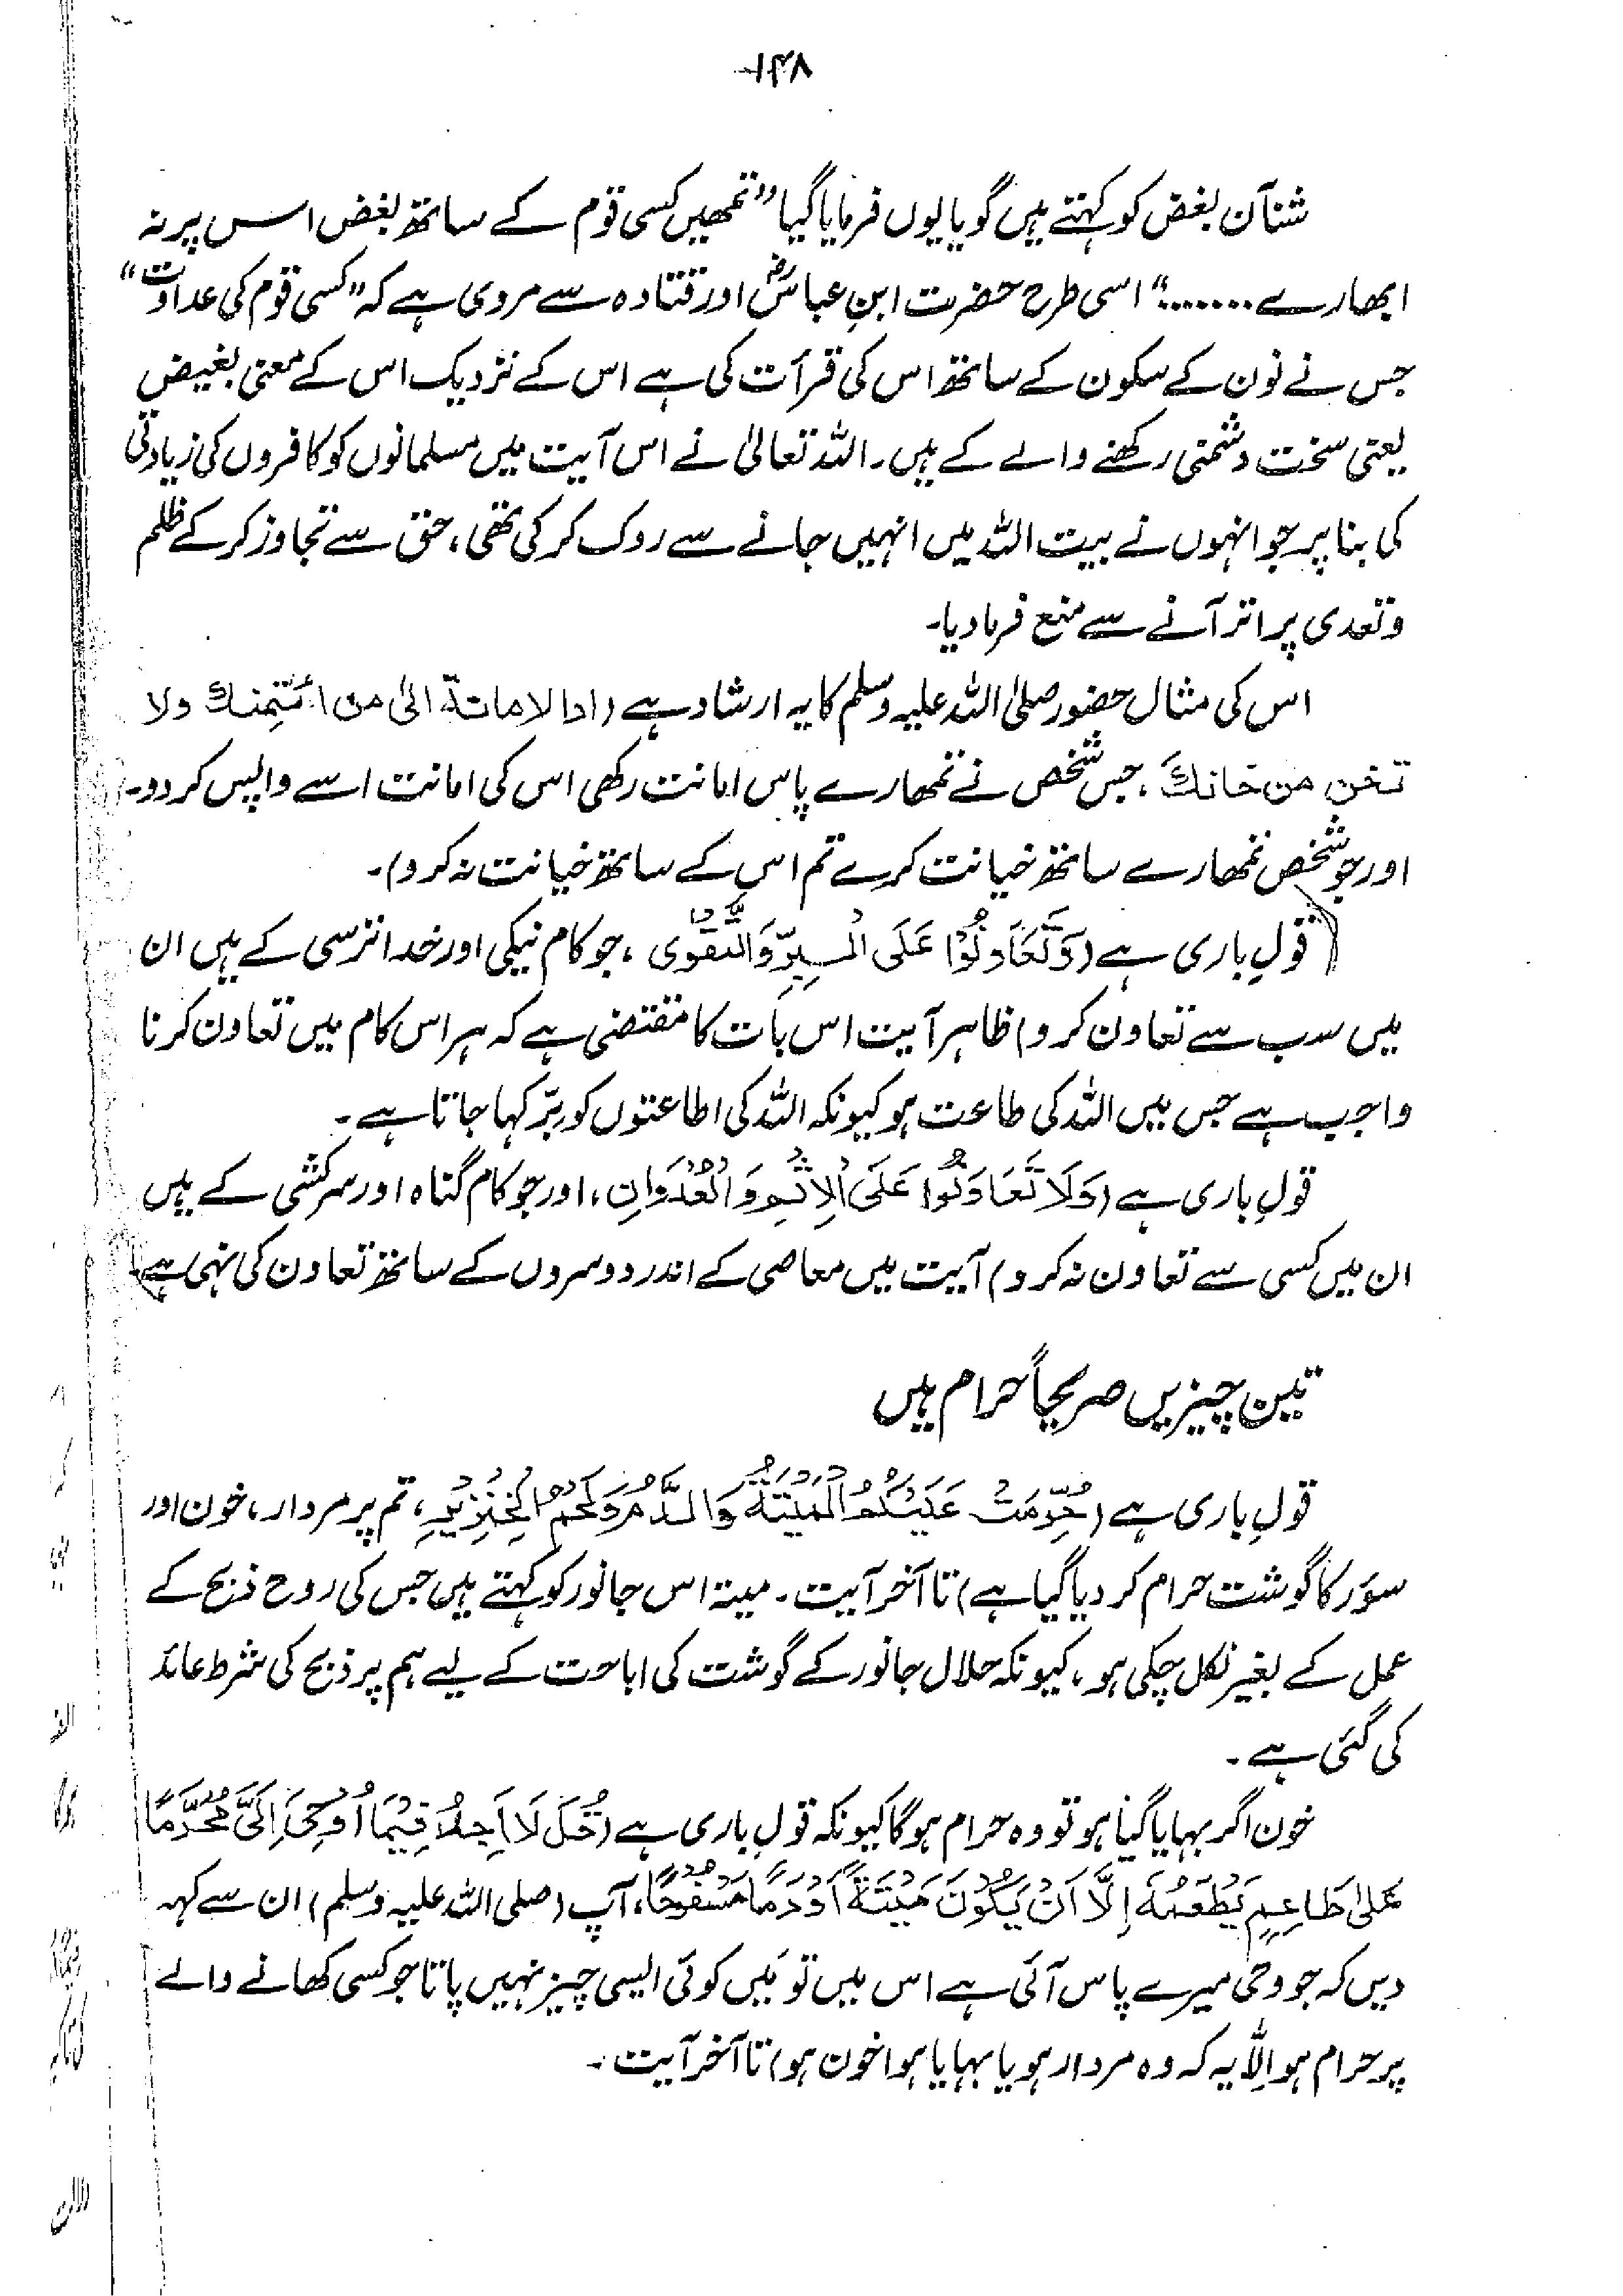 ۱۴۸
شنآن بغض کو کہتے ہیں گویا یوں فرمایا گیا ”تمھیں کسی قوم کے ساتھ بغض اس پر نہ
ابھارے .......“ اسی طرح حضرت ابنِ عباسؓ اور قتادہ سے مروی ہے کہ ”کسی قوم کی عداوت“
جس نے نون کے سکون کے ساتھ اس کی قرأت کی ہے اس کے نزدیک اس کے معنی بغیض
یعنی سخت دشمنی رکھنے والے کے ہیں۔ اللہ تعالیٰ نے اس آیت میں مسلمانوں کو کافروں کی زیادتی
کی بنا پر جو انہوں نے بیت اللہ میں انہیں جانے سے روک کر کی تھی، حق سے تجاوز کر کے ظلم
و تعدی پر اتر آنے سے منع فرما دیا۔
اس کی مثال حضور صلی اللہ علیہ وسلم کا یہ ارشاد ہے (ادا لامانۃ الیٰ من ائتمنک ولا
تخن من خانکَ، جس شخص نے تمھارے پاس امانت رکھی اس کی امانت اسے واپس کر دو۔
اور جو شخص تمھارے ساتھ خیانت کرے تم اس کے ساتھ خیانت نہ کرو)۔
قولِ باری ہے (وَتَعَاوَنُوْا عَلَی الْبِرِّ وَالتَّقْوٰی، جو کام نیکی اور خدا ترسی کے ہیں ان
میں سب سے تعاون کرو) ظاہر آیت اس بات کا مقتضی ہے کہ ہر اس کام میں تعاون کرنا
واجب ہے جس میں اللہ کی طاعت ہو کیونکہ اللہ کی اطاعتوں کو بِرّ کہا جاتا ہے۔
قولِ باری ہے (وَلَا تَعَاوَنُوْا عَلَی الْاِثْمِ وَالْعُدْوَانِ، اور جو کام گناہ اور سرکشی کے ہیں
ان میں کسی سے تعاون نہ کرو) آیت میں معاصی کے اندر دوسروں کے ساتھ تعاون کی نہی ہے۔
تین چیزیں صریحاً حرام ہیں
قولِ باری ہے (حُرِّمَتْ عَلَیْکُمُ الْمَیْتَۃُ وَالدَّمُ وَلَحْمُ الْخِنْزِیْرِ، تم پر مردار، خون اور
سوٗر کا گوشت حرام کر دیا گیا ہے) تا آخر آیت۔ میتۃ اس جانور کو کہتے ہیں جس کی روح ذبح کے
عمل کے بغیر نکل چکی ہو، کیونکہ حلال جانور کے گوشت کی اباحت کے لیے ہم پر ذبح کی شرط عائد
کی گئی ہے۔
خون اگر بہایا گیا ہو تو وہ حرام ہوگا کیونکہ قولِ باری ہے (قُلْ لَا اَجِدُ فِیْمَا اُوْحِیَ اِلَیَّ مُحَرَّمًا
عَلٰی طَاعِمٍ یَطْعَمُہٗ اِلَّا اَنْ یَکُوْنَ مَیْتَۃً اَوْ دَمًا مَسْفُوْحًا، آپ (صلی اللہ علیہ وسلم) ان سے کہہ
دیں کہ جو وحی میرے پاس آئی ہے اس میں تو مَیں کوئی ایسی چیز نہیں پاتا جو کسی کھانے والے
پر حرام ہو اِلّا یہ کہ وہ مردار ہو یا بہایا ہوا خون ہو) تا آخر آیت۔